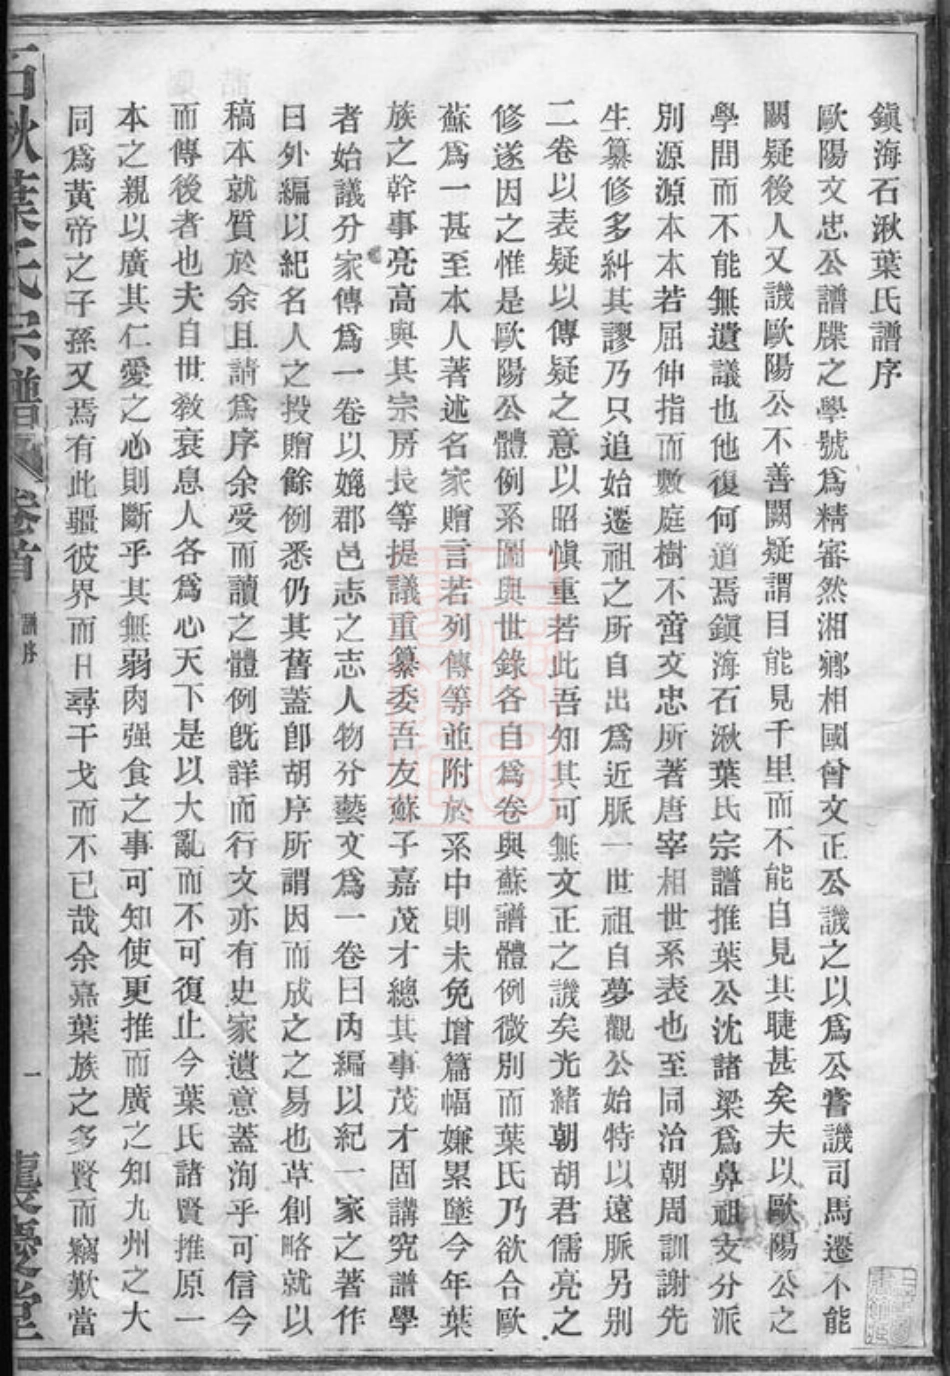 鎮海石湫葉氏譜序
歐陽文忠公譜牒之學號爲精審然湘鄉相國曾文正公譏之以爲公嘗譏司馬遷不能
闕疑後人又譏歐陽公不善闕疑謂目能見千里而不能自見其睫甚矣夫以歐陽公之
學問而不能無遺議也他復何道焉鎮海石湫葉氏宗譜推葉公沈諸梁爲鼻祖支分派
別源源本本若屈伸指而數庭樹不啻文忠所著唐宰相世系表也至同治朝周訓謝先
生纂修多糾其謬乃只追始遷祖之所自出爲近脈一世祖自夢觀公始特以遠脈另別
二卷以表疑以傳疑之意以昭愼重若此吾知其可無文正之譏矣光緒朝胡君儒亮之
修遂因之惟是歐陽公體例系圖與世錄各自爲卷與蘇譜體例微別而葉氏乃欲合歐
蘇爲一甚至本人著述名家贈言若列傳等並附於系中則未免增篇幅嫌累墜今年葉
族之幹事亮高與其宗房長等提議重纂委吾友蘇子嘉茂才總其事茂才固講究譜學
者始議分家傳爲一卷以媲郡邑志之志人物分藝文爲一卷曰內編以紀一家之著作
曰外編以紀名人之投贈餘例悉仍其舊蓋卽胡序所謂因而成之之易也草創略就以
稿本就質於余且請爲序余受而讀之體例旣詳而行文亦有史家遺意蓋洵乎可信今
而傳後者也夫自世敎衰息人各爲心天下是以大亂而不可復止今葉氏諸賢推原一
本之親以廣其仁愛之心則斷乎其無弱肉强食之事可知使更推而廣之知九州之大
同爲黃帝之子孫又焉有此疆彼界而日尋干戈而不已哉余嘉葉族之多賢而竊歎當
石湫葉氏宗譜 卷首 譜序 一 襲慶堂